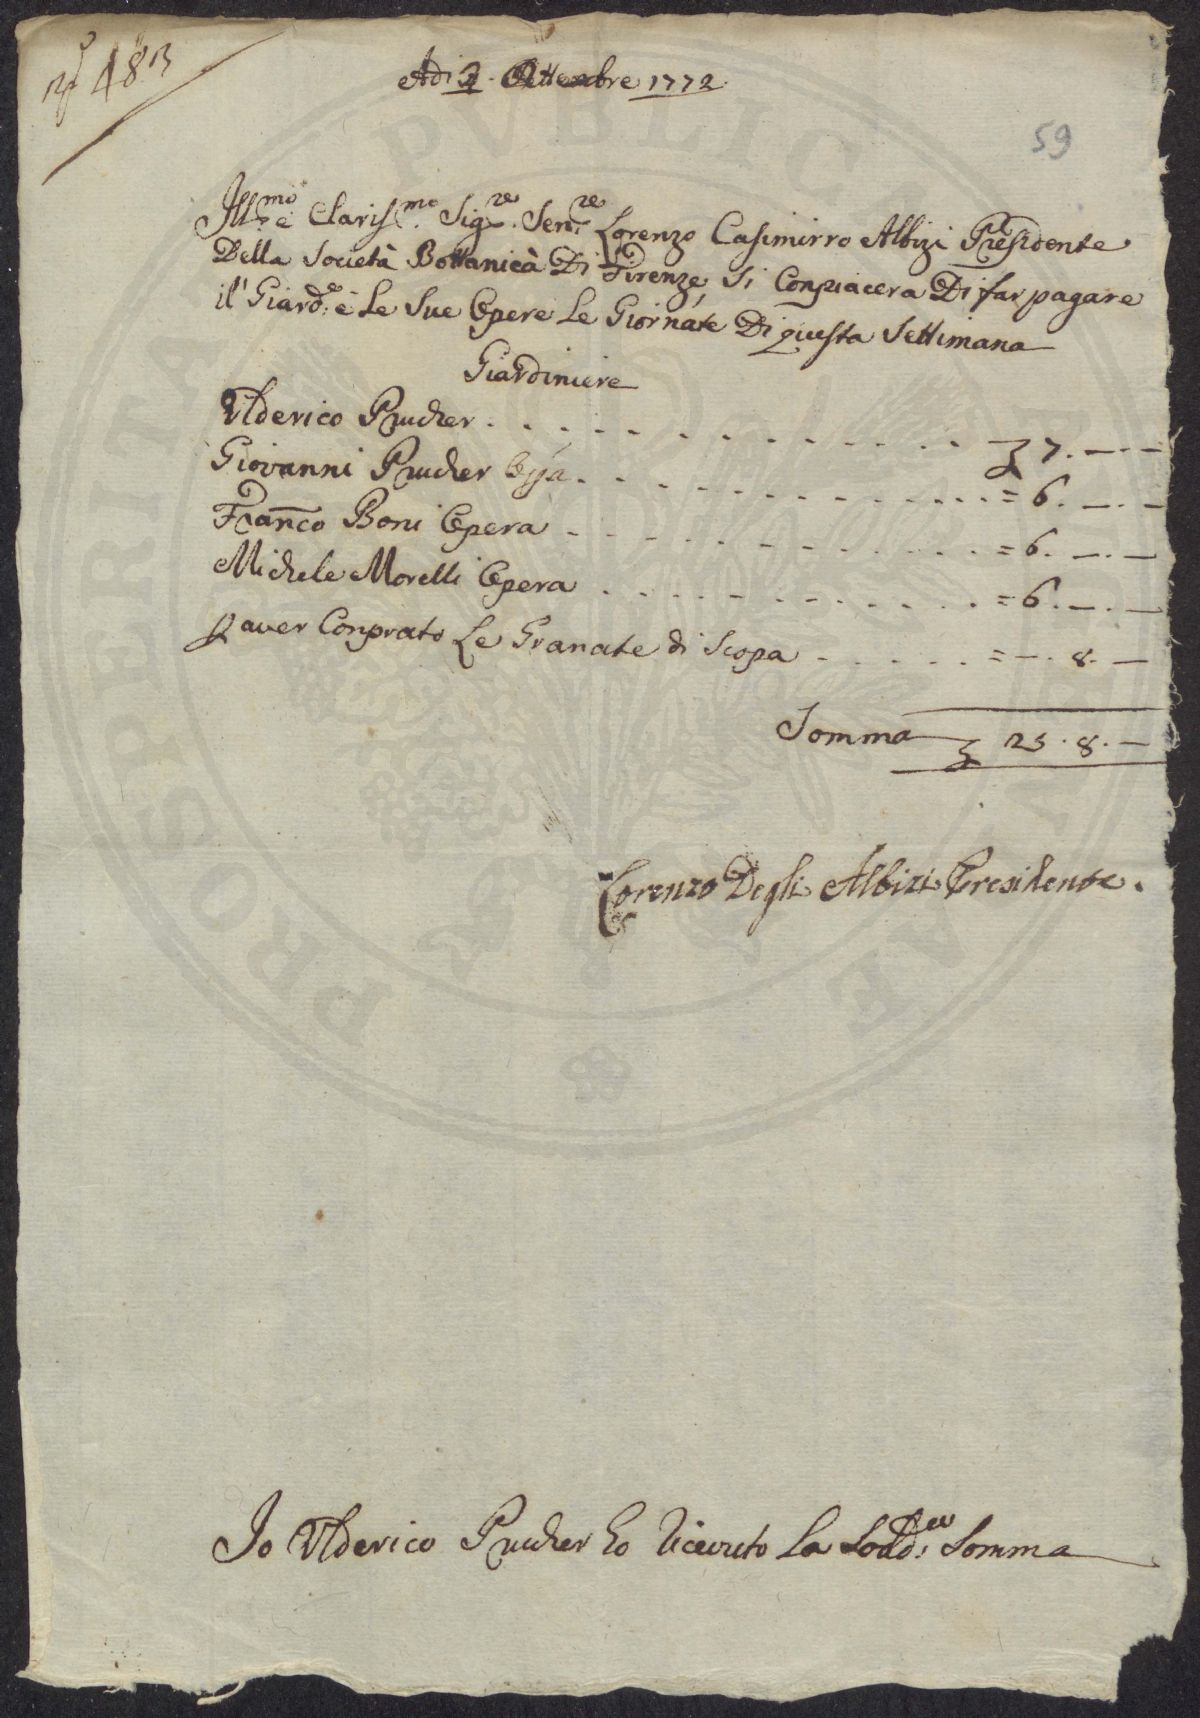 N.º 483
Adi 3. Ottenbre 1772.
59
Ill:mo e Clariss:mo Sig:re Sen:re Lorenzo Casimirro Albizi Presidente
Della Società Bottanicà Di Firenze, Si Conpiacera Di far pagare
il' Giard:e e Le Sue Opere Le Giornate Di questa Settimana
Giardiniere
Vlderico Prucher . . . . . . . . . . . . £ 7. —. —
Giovanni Prucher Op:a . . . . . . . . . . . = 6. —. —
Fran:co Boni Opera . . . . . . . . . . . = 6. —. —
Michele Morelli Opera . . . . . . . . . . = 6. —. —
p aver Conprato Le Granate di Scopa . . . . . . = —. 8. —
Somma £ 25. 8. —
Lorenzo Degli Albizi Presidente.
Io Vlderico Prucher ho Riceuto La Sodd:a Somma
PROSPERITATI PVBLICAE